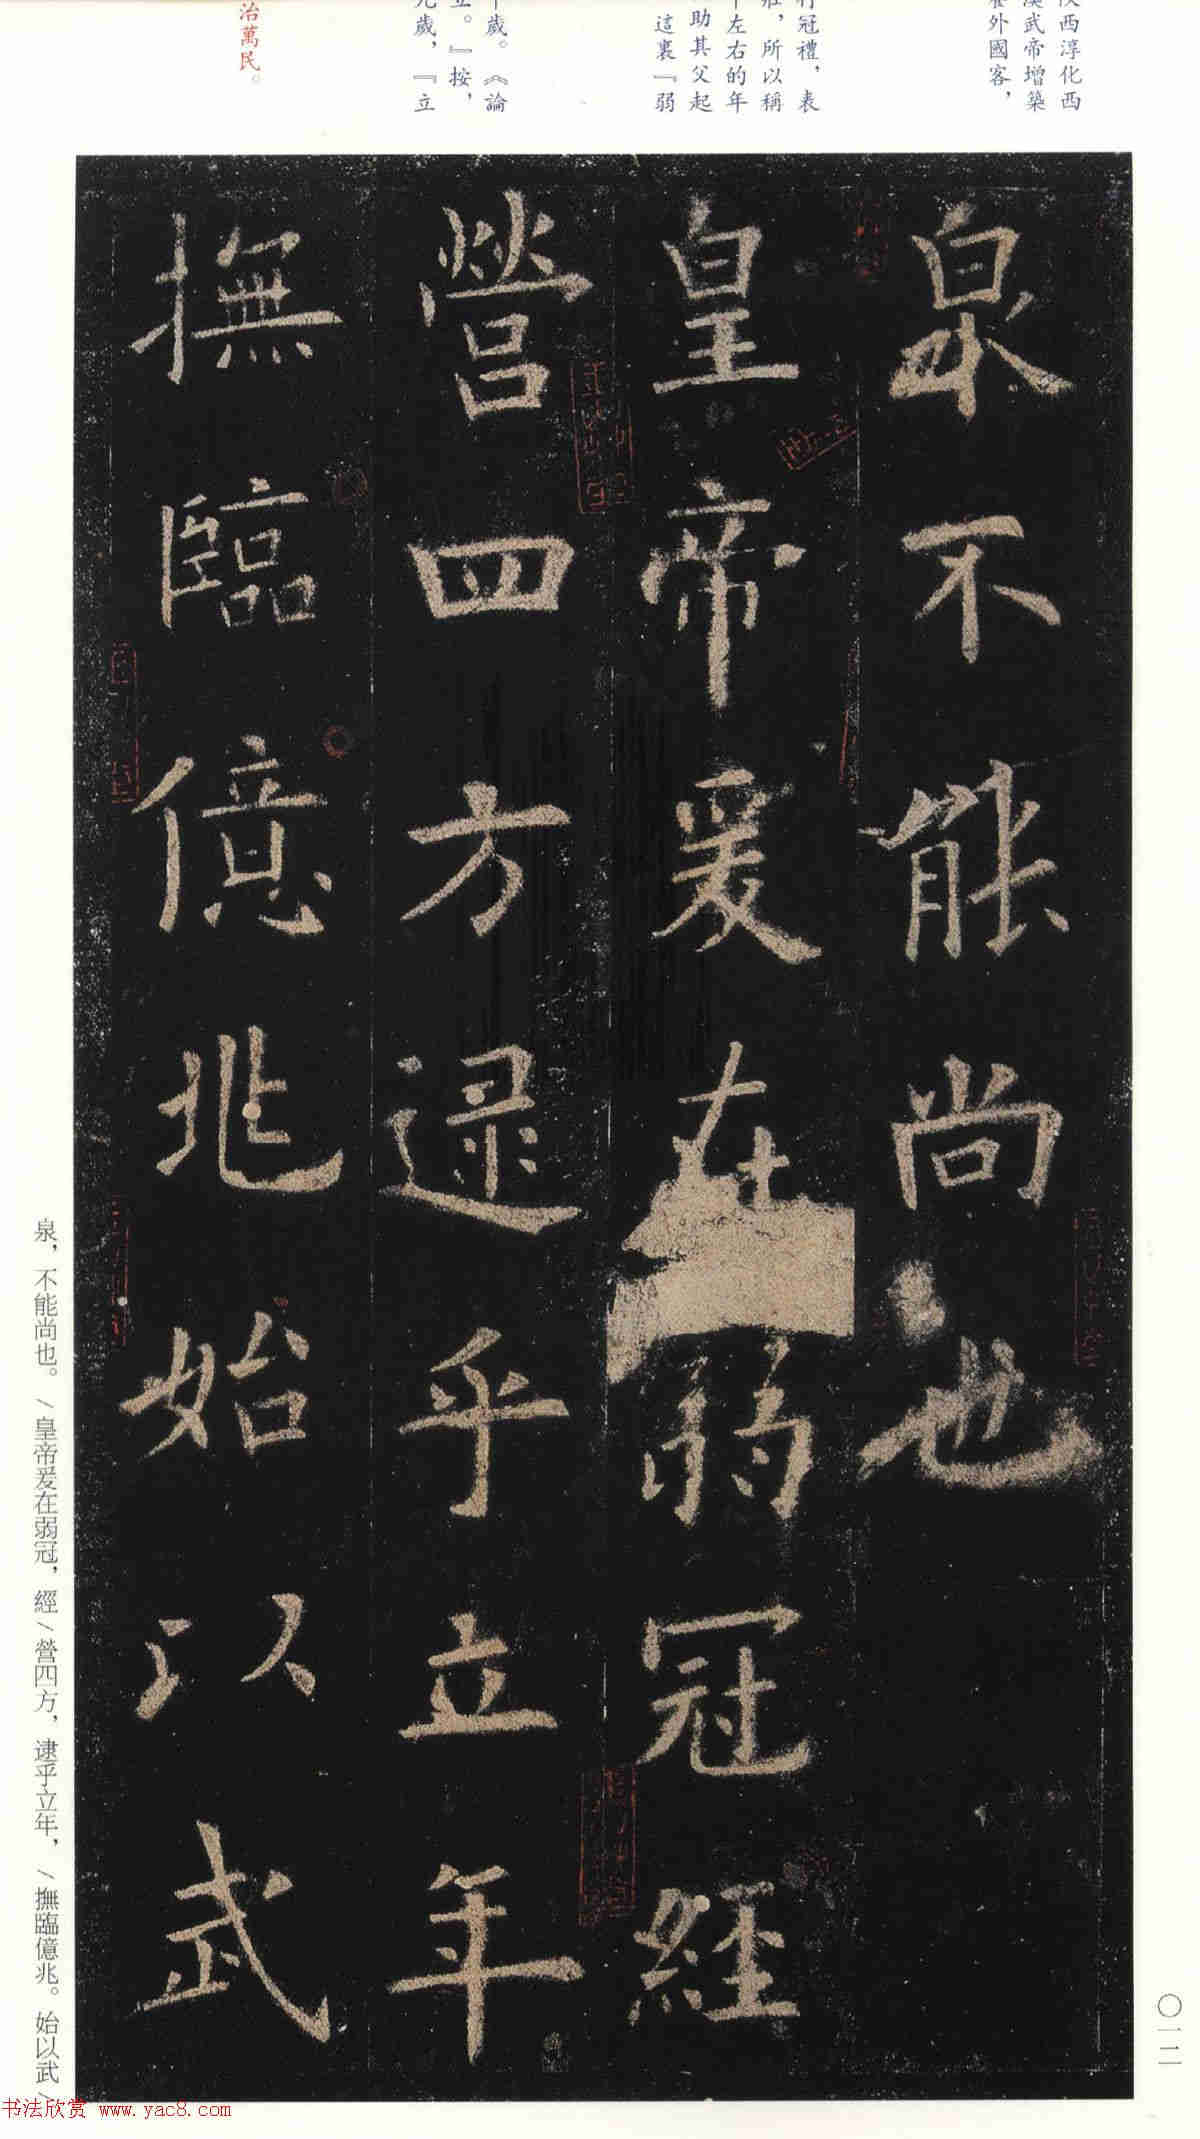 陝西淳化西
漢武帝增築
外國客，
行冠禮，表
壯，所以稱
十左右的年
助其父起
這裏『弱
十歲。《論
立。』按，
九歲，『立
治萬民。
泉不能尚也
皇帝爰在弱冠經
營四方逮乎立年
撫臨億兆始以武
泉，不能尚也。/皇帝爰在弱冠，經/營四方，逮乎立年，/撫臨億兆。始以武/
〇一二
书法欣赏 www.yac8.com